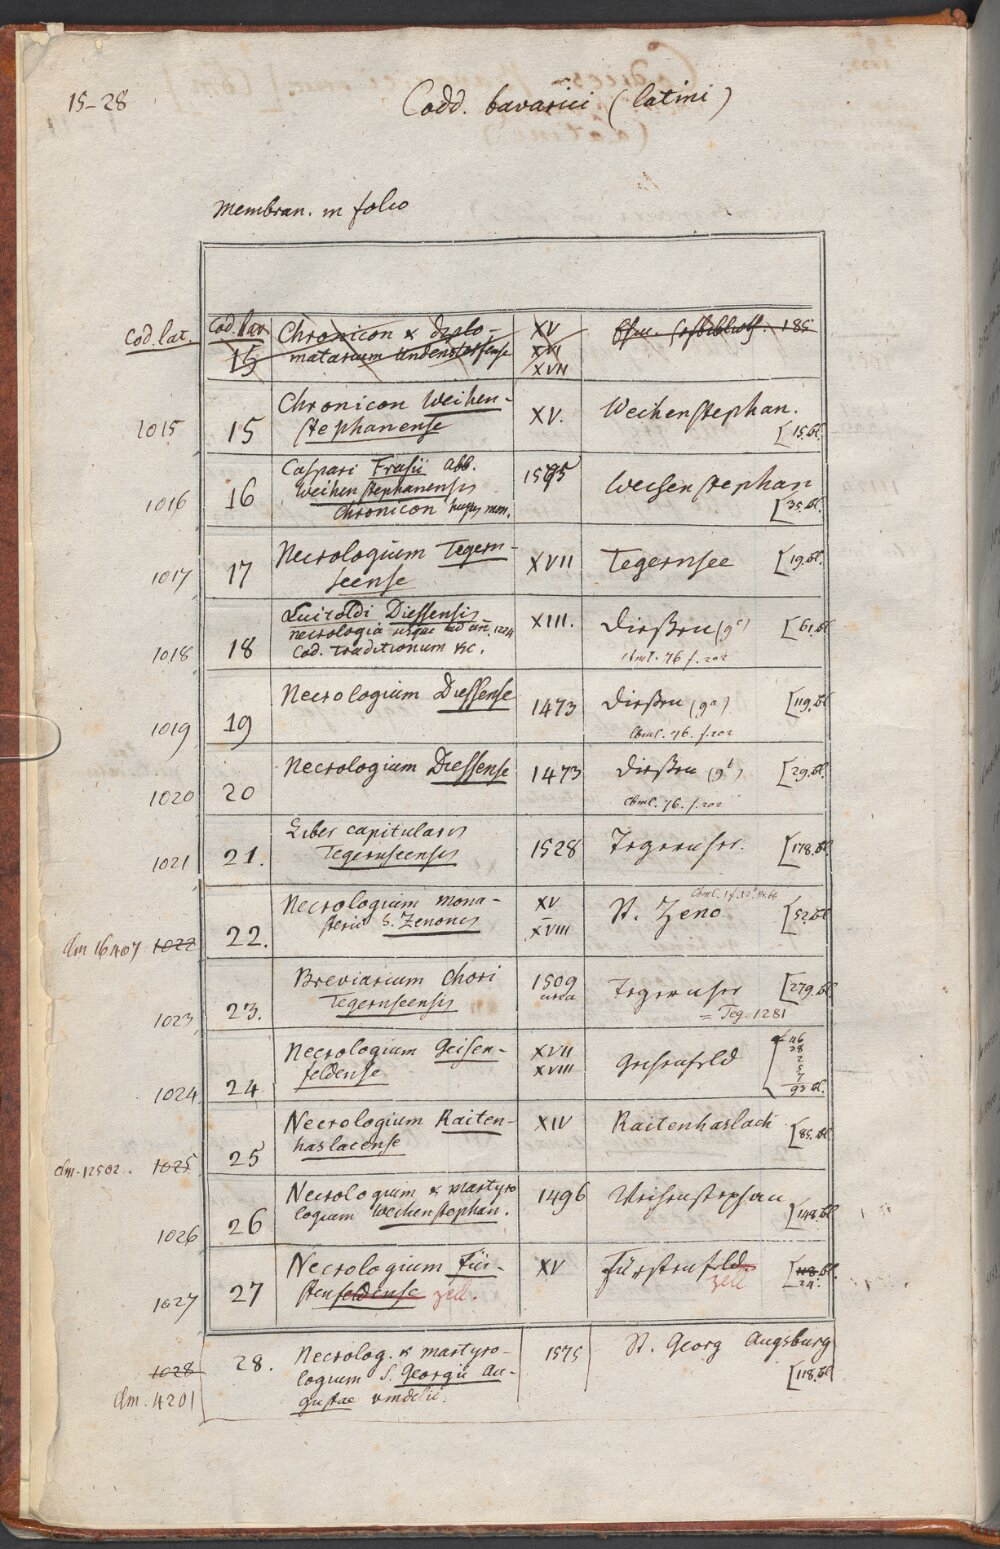 15-28
Codd. bavarici (latini)
Membran. in folio
Cod. lat.
Cod. bav.
15
Chronicon & diplo-
matarium Undenstorfense
XV
XVI
XVII
185
1015
15
Chronicon Weihen-
stephanense
XV.
Weihenstephan.
[15. bl.
1016
16
Caspari Frasii Abb.
Weihenstephanensis
Chronicon
1595
Weihenstephan
[35. bl.
1017
17
Necrologium Tegern-
seense
XVII
Tegernsee
[19. bl.
1018
18
Luitoldi Diessensis
necrologia usque ad an. 1224
Cod. Traditionum &c.
XIII.
Dießen (9c)
Cbml. 76 f. 202
[61. bl
1019
19
Necrologium Diessense
1473
Dießen (9a)
Cbml. 76. f. 202
[119. bl
1020
20
Necrologium Diessense
1473
Dießen (9b)
Cbml. 76. f. 202
[29. bl
1021
21.
Liber capitularis
Tegernseensis
1528
Tegernsee.
[178. bl
clm 16407 1022
22.
Necrologium mona-
sterii S. Zenonis
XV
–
XVIII
St. Zeno
[52. bl
1023
23.
Breviarium Chori
Tegernseensis
1509
circa
Tegernsee
= Teg. 1281
[279. bl
1024
24
Necrologium Geisen-
feldense
XVII
XVIII
Geisenfeld
46
38
2
5
7
93 bl.
clm. 12502. 1025
25
Necrologium Raiten-
haslacense
XIV
Raitenhaslach
[85. bl
1026
26
Necrologium & martyro
logium Weihenstephan.
1496
Weihenstephan
[148. bl
1027
27
Necrologium Für-
stenfeldense zell.
XV
Fürstenfeld
zell
[118. bl.
29.
1028
clm. 4201
28.
Necrolog. & martyro-
logium S. Georgii Au-
gustae vindelic.
1575
St. Georg Augsburg
[118. bl